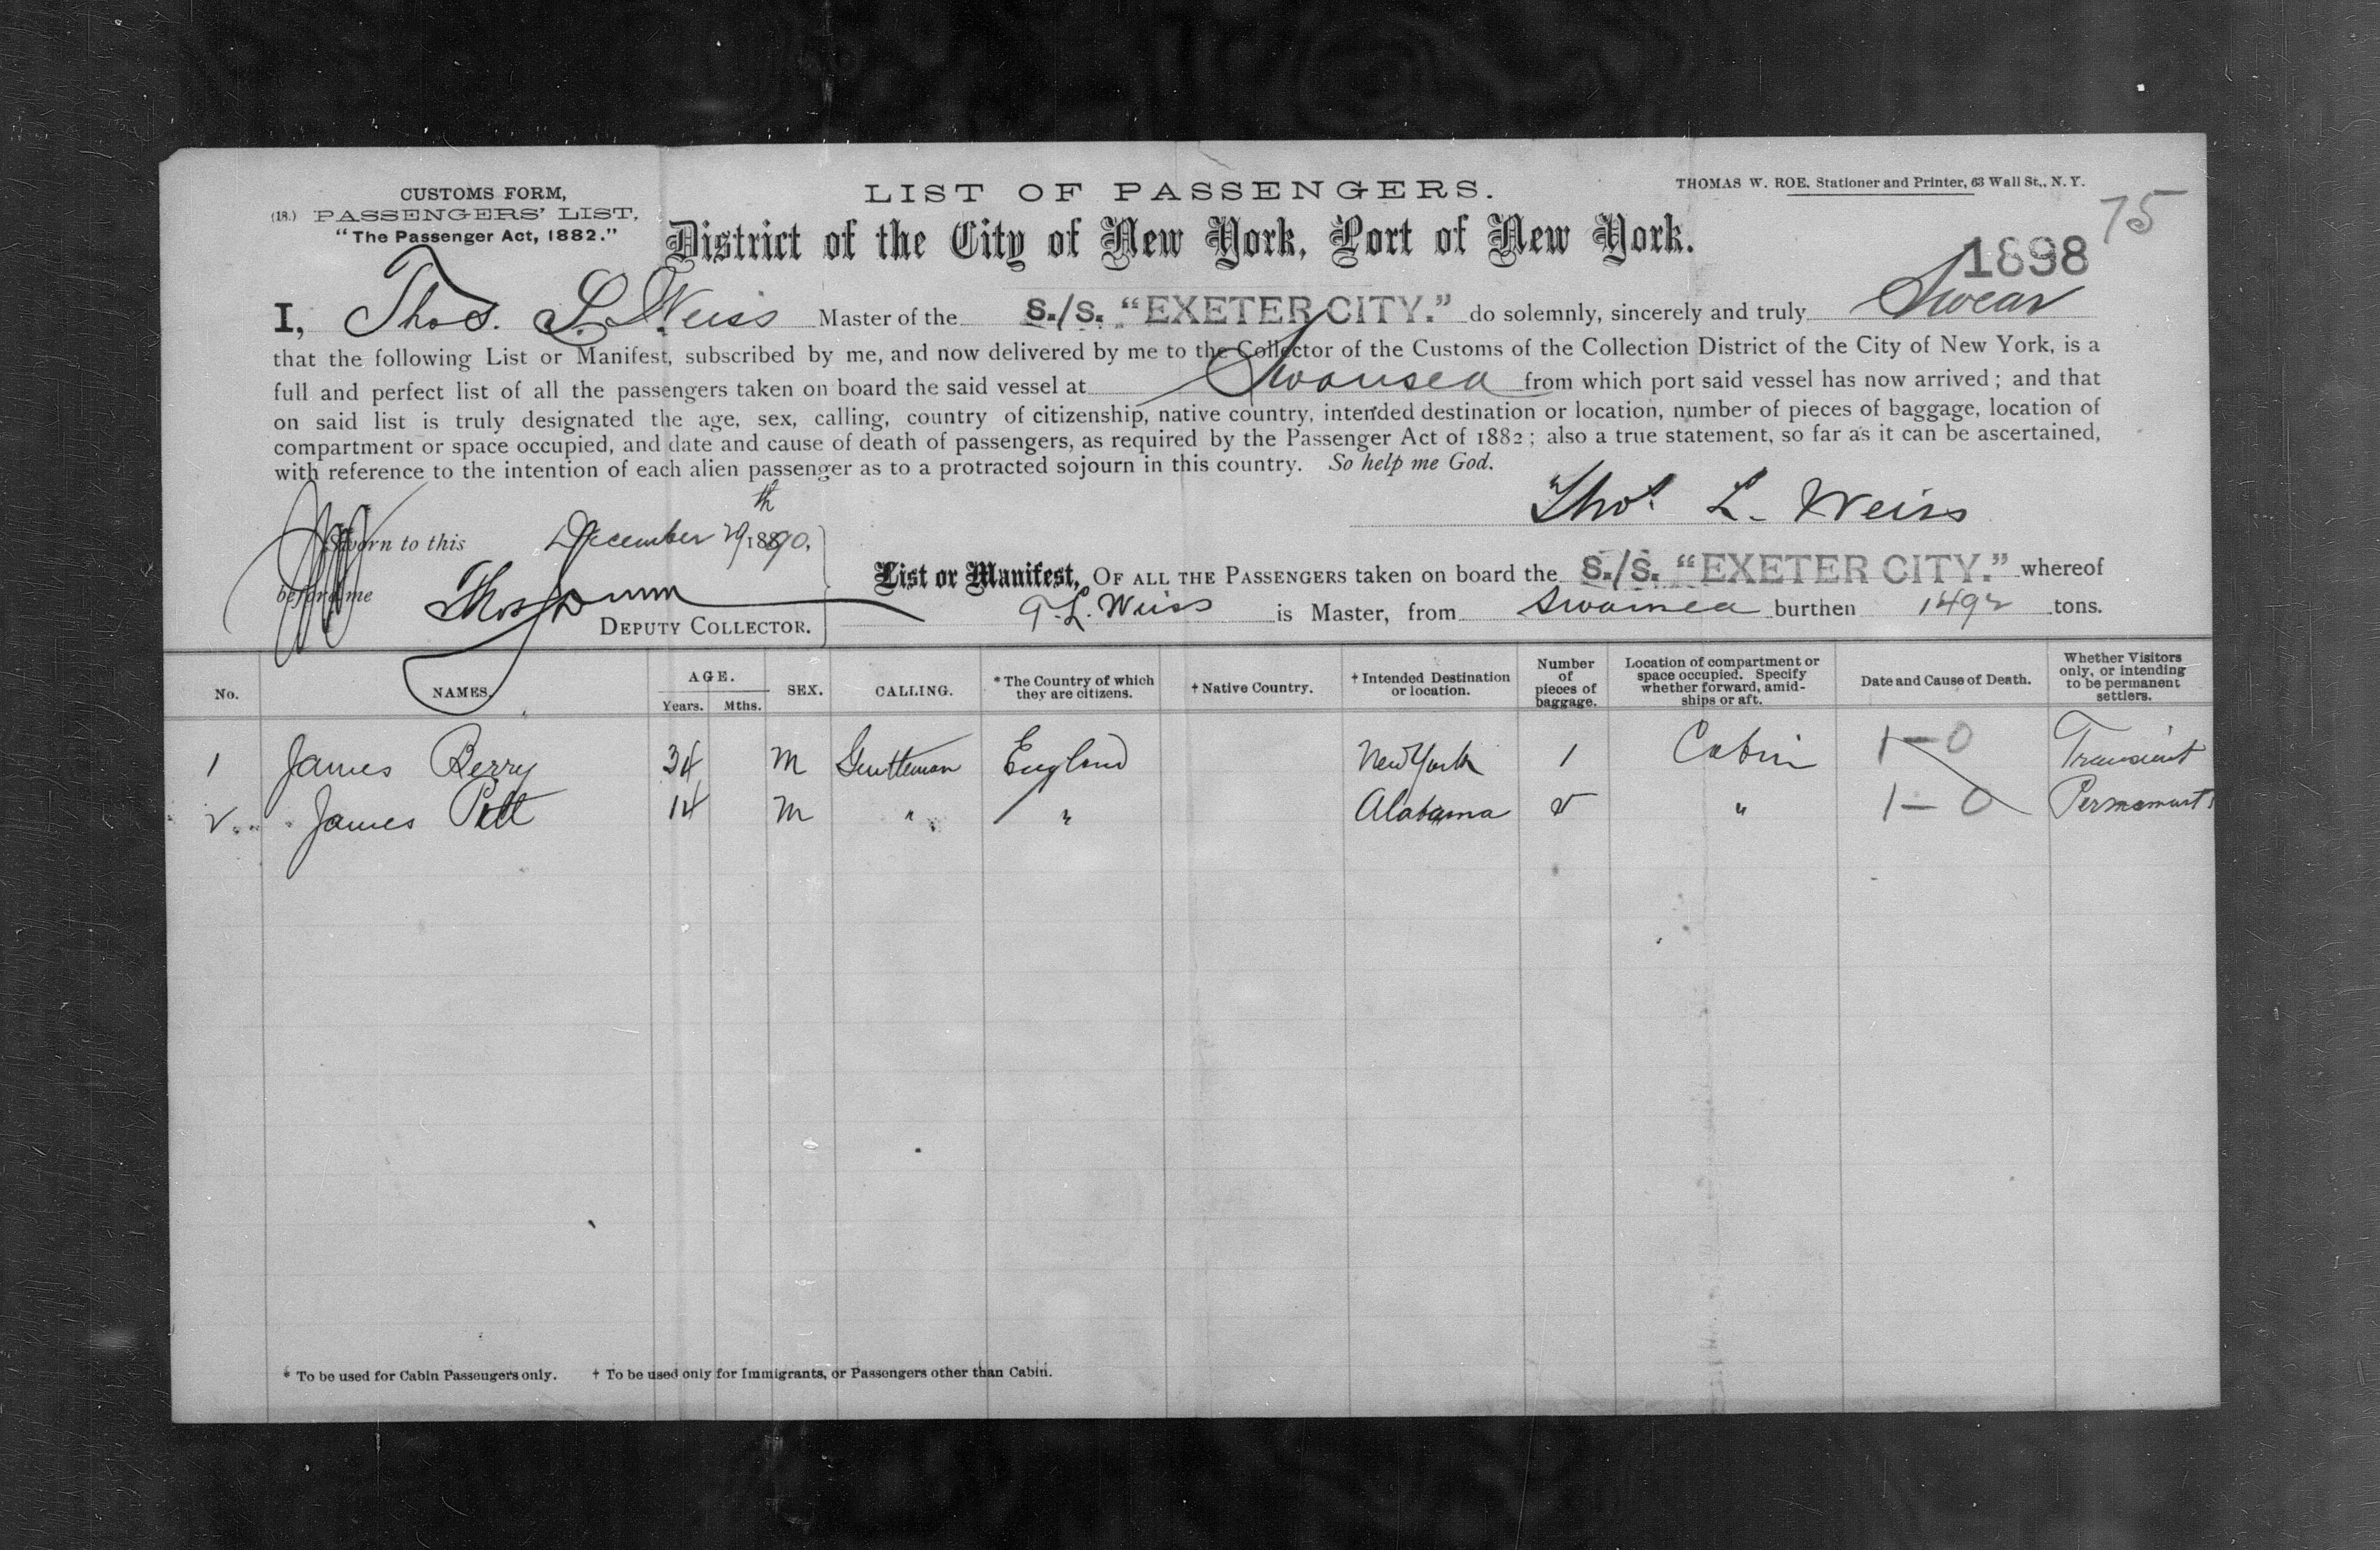 CUSTOMS FORM,
(18.) PASSENGERS' LIST,
"The Passenger Act, 1882."
LIST OF PASSENGERS.
THOMAS W. ROE, Stationer and Printer, 63 Wall St., N. Y.
75
District of the City of New York, Port of New York.
1898
I, Thos. L. Weiss Master of the S./S. "EXETER CITY." do solemnly, sincerely and truly Swear
that the following List or Manifest, subscribed by me, and now delivered by me to the Collector of the Customs of the Collection District of the City of New York, is a
full and perfect list of all the passengers taken on board the said vessel at Swansea from which port said vessel has now arrived; and that
on said list is truly designated the age, sex, calling, country of citizenship, native country, intended destination or location, number of pieces of baggage, location of
compartment or space occupied, and date and cause of death of passengers, as required by the Passenger Act of 1882; also a true statement, so far as it can be ascertained,
with reference to the intention of each alien passenger as to a protracted sojourn in this country. So help me God.
Thos. L. Weiss
Sworn to this December 29th 1890,
before me Thos Dunn
DEPUTY COLLECTOR.
List or Manifest, OF ALL THE PASSENGERS taken on board the S./S. "EXETER CITY." whereof
T. L. Weiss is Master, from Swansea burthen 1492 tons.
No. NAMES. AGE. Years. Mths. SEX. CALLING. * The Country of which they are citizens. † Native Country. † Intended Destination or location. Number of pieces of baggage. Location of compartment or space occupied. Specify whether forward, amidships or aft. Date and Cause of Death. Whether Visitors only, or intending to be permanent settlers.
1 James Berry 34 M Gentleman England New York 1 Cabin 1-0 Transient
2 James Pitt 14 M " " Alabama 2 " 1-0 Permanent
* To be used for Cabin Passengers only. † To be used only for Immigrants, or Passengers other than Cabin.